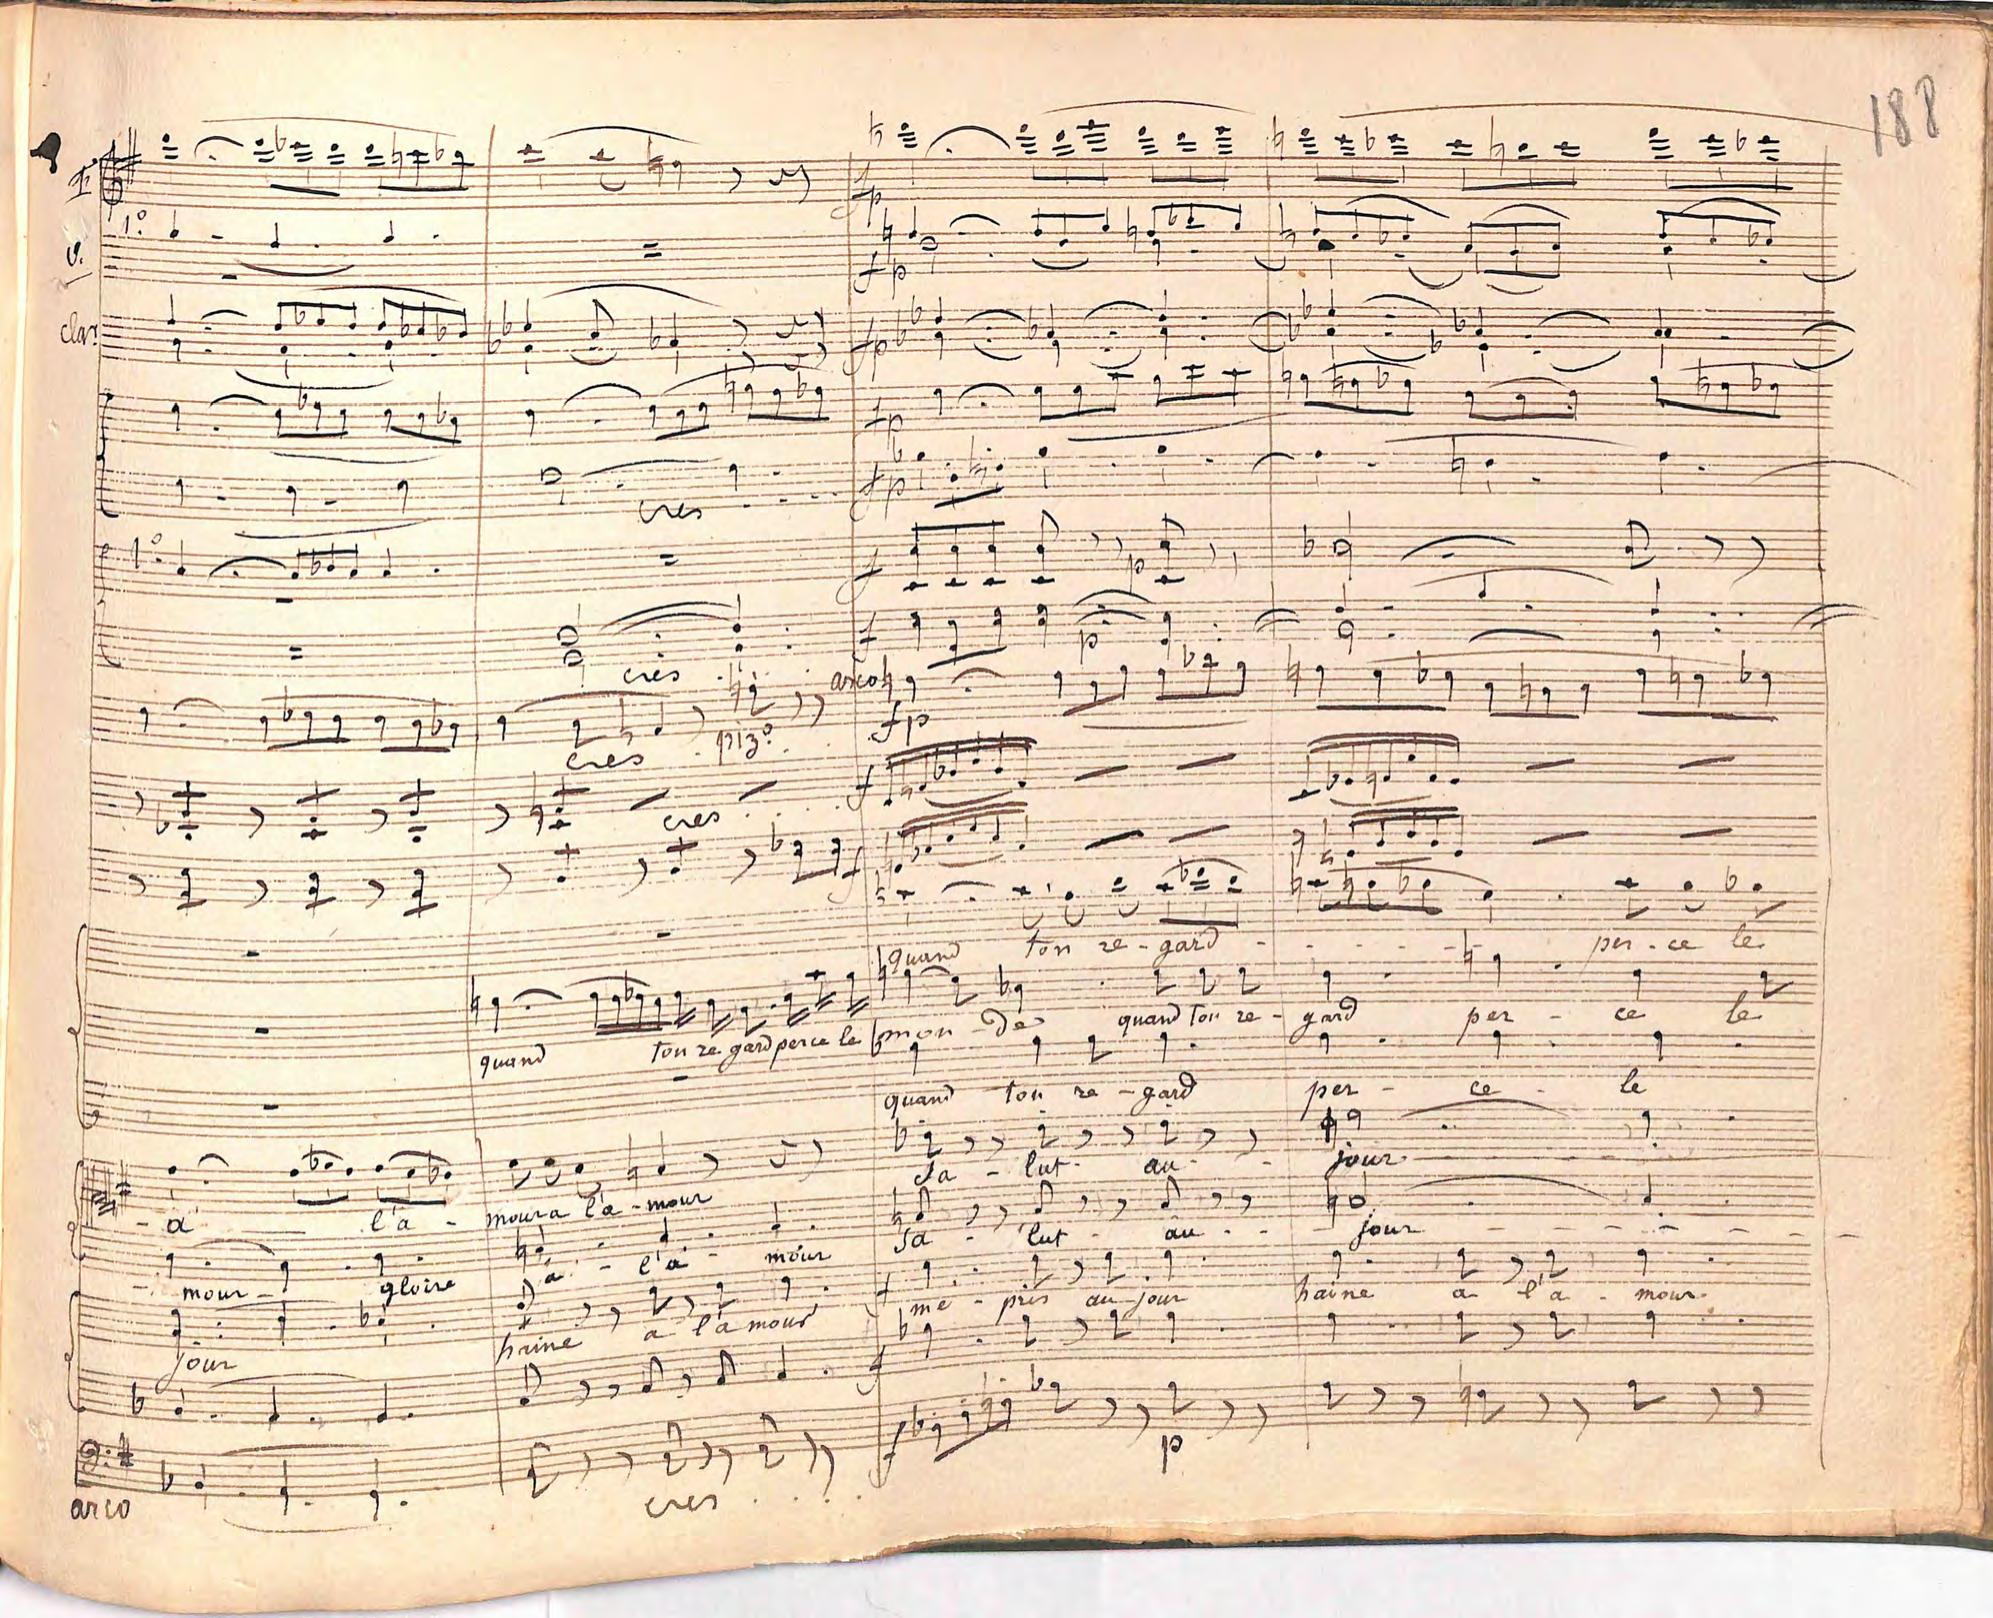 188
fl.
1º
fp
clar.
fp
fp
cres
fp
1º
f
p
cres
f
p
arco
fp
cres
pizº
cres
f
f
quand ton re-gard - - - - - per-ce le
quand ton re gard perce le mon - de quand ton re - gard per - ce le
quand ton re - gard per - ce - le
Sa - lut - au - - jour
- a l'a - mour a l'a - mour
Sa - lut - au - - - jour - - - - -
- mour - gloire à - l'a - mour
f me - pris au jour haine a l'a - mour
jour haine a l'a mour
f
f
p
arco
cres